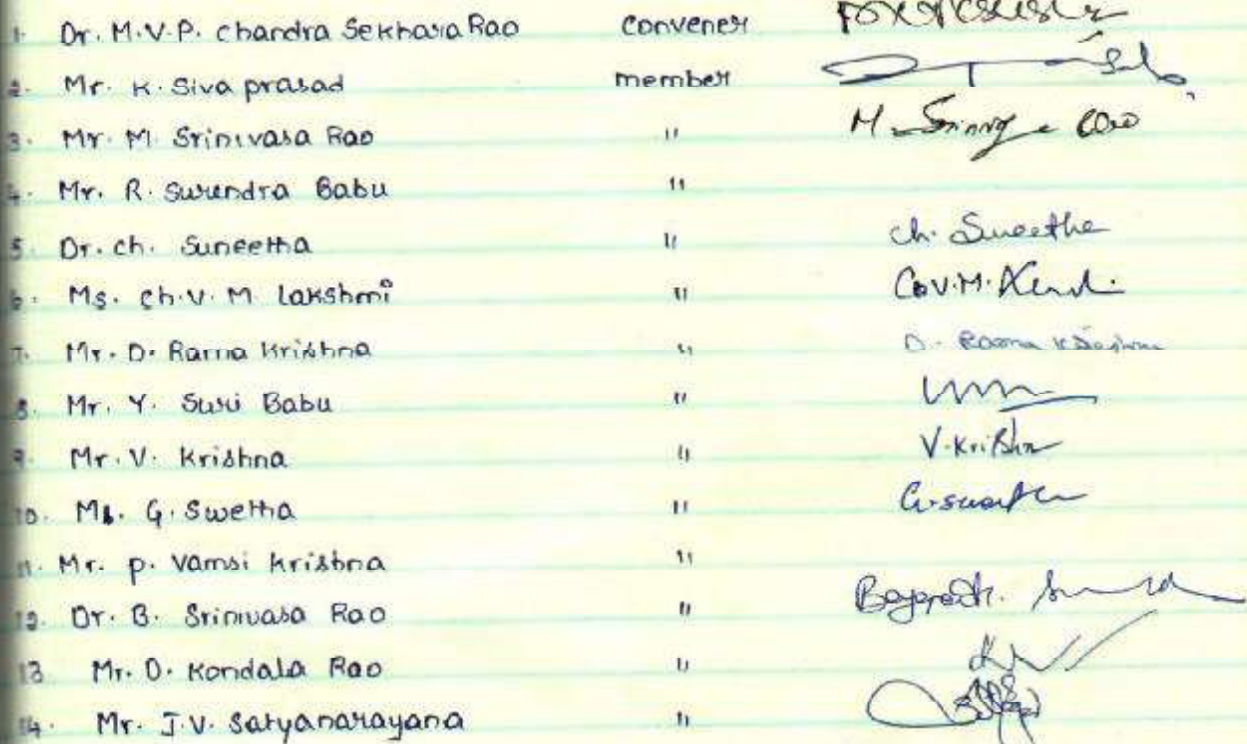 1. Dr. M.V.P. Chandra Sekhara Rao convener
2. Mr. K. Siva prasad member
3. Mr. M. Srinivasa Rao " M. Srinivasa Rao
4. Mr. R. Surendra Babu "
5. Dr. ch. Suneetha " ch. Suneetha
6. Ms. ch.v.M. Lakshmi "
7. Mr. D. Rama Krishna " D. Rama Krishna
8. Mr. Y. Suri Babu "
9. Mr. V. Krishna " V. Krishna
10. Ms. G. Swetha " G. Swetha
11. Mr. p. Vamsi Krishna "
12. Dr. B. Srinivasa Rao "
13 Mr. D. Kondala Rao "
14. Mr. J.V. Satyanarayana "